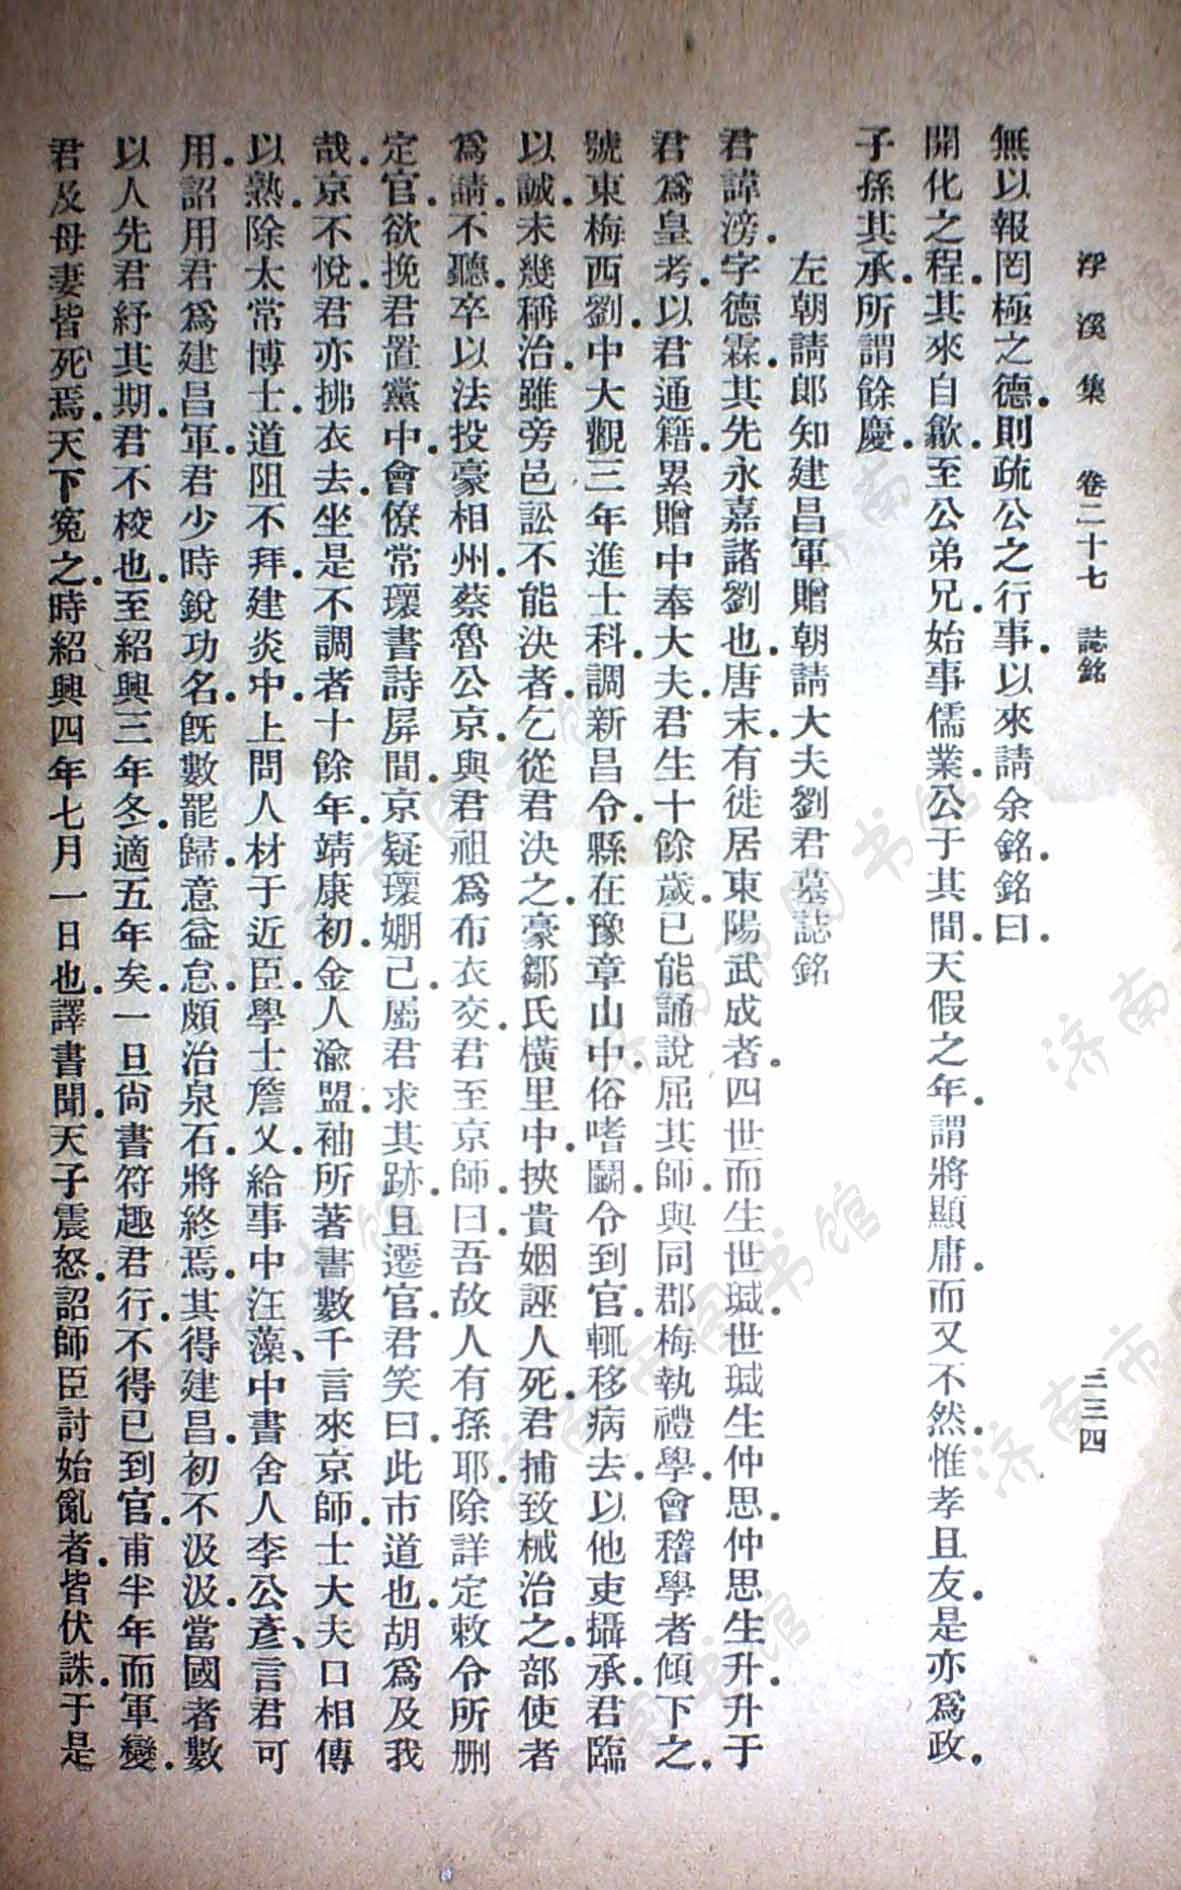 浮溪集 卷二十七 誌銘 三三四
無以報罔極之德．則疏公之行事．以來請余銘．銘曰．
開化之程．其來自歙．至公弟兄．始事儒業．公于其間．天假之年．謂將顯庸．而又不然．惟孝且友．是亦爲政．
子孫其承．所謂餘慶．
左朝請郎知建昌軍贈朝請大夫劉君墓誌銘
君諱滂．字德霖．其先永嘉諸劉也．唐末．有徙居東陽武成者．四世而生世珹．世珹生仲思．仲思生升．升于
君爲皇考．以君通籍．累贈中奉大夫．君生十餘歲．已能誦說屈其師．與同郡梅執禮學．會稽學者傾下之．
號東梅西劉．中大觀三年進士科．調新昌令．縣在豫章山中．俗嗜鬬．令到官．輒移病去．以他吏攝承．君臨
以誠．未幾稱治．雖旁邑訟不能決者．乞從君決之．豪鄒氏橫里中．挾貴姻誣人死．君捕致械治之．部使者
爲請．不聽．卒以法投豪相州．蔡魯公京．與君祖爲布衣交．君至京師．曰．吾故人有孫耶．除詳定敕令所删
定官．欲挽君置黨中．會僚常瓌書詩屏間．京疑瓌嫺己．屬君求其跡．且遷官．君笑曰．此市道也．胡爲及我
哉．京不悅．君亦拂衣去．坐是不調者十餘年．靖康初．金人渝盟．袖所著書數千言來京師．士大夫口相傳
以熟．除太常博士．道阻不拜．建炎中．上問人材于近臣．學士詹乂．給事中汪藻、中書舍人李公彥、言君可
用．詔用君爲建昌軍．君少時銳功名．旣數罷歸．意益怠．頗治泉石．將終焉．其得建昌．初不汲汲．當國者數
以人先君紓其期．君不校也．至紹興三年冬．適五年矣．一旦尙書符趣君行．不得已到官．甫半年而軍變．
君及母妻皆死焉．天下冤之．時紹興四年七月一日也．譯書聞．天子震怒．詔師臣討始亂者．皆伏誅．于是